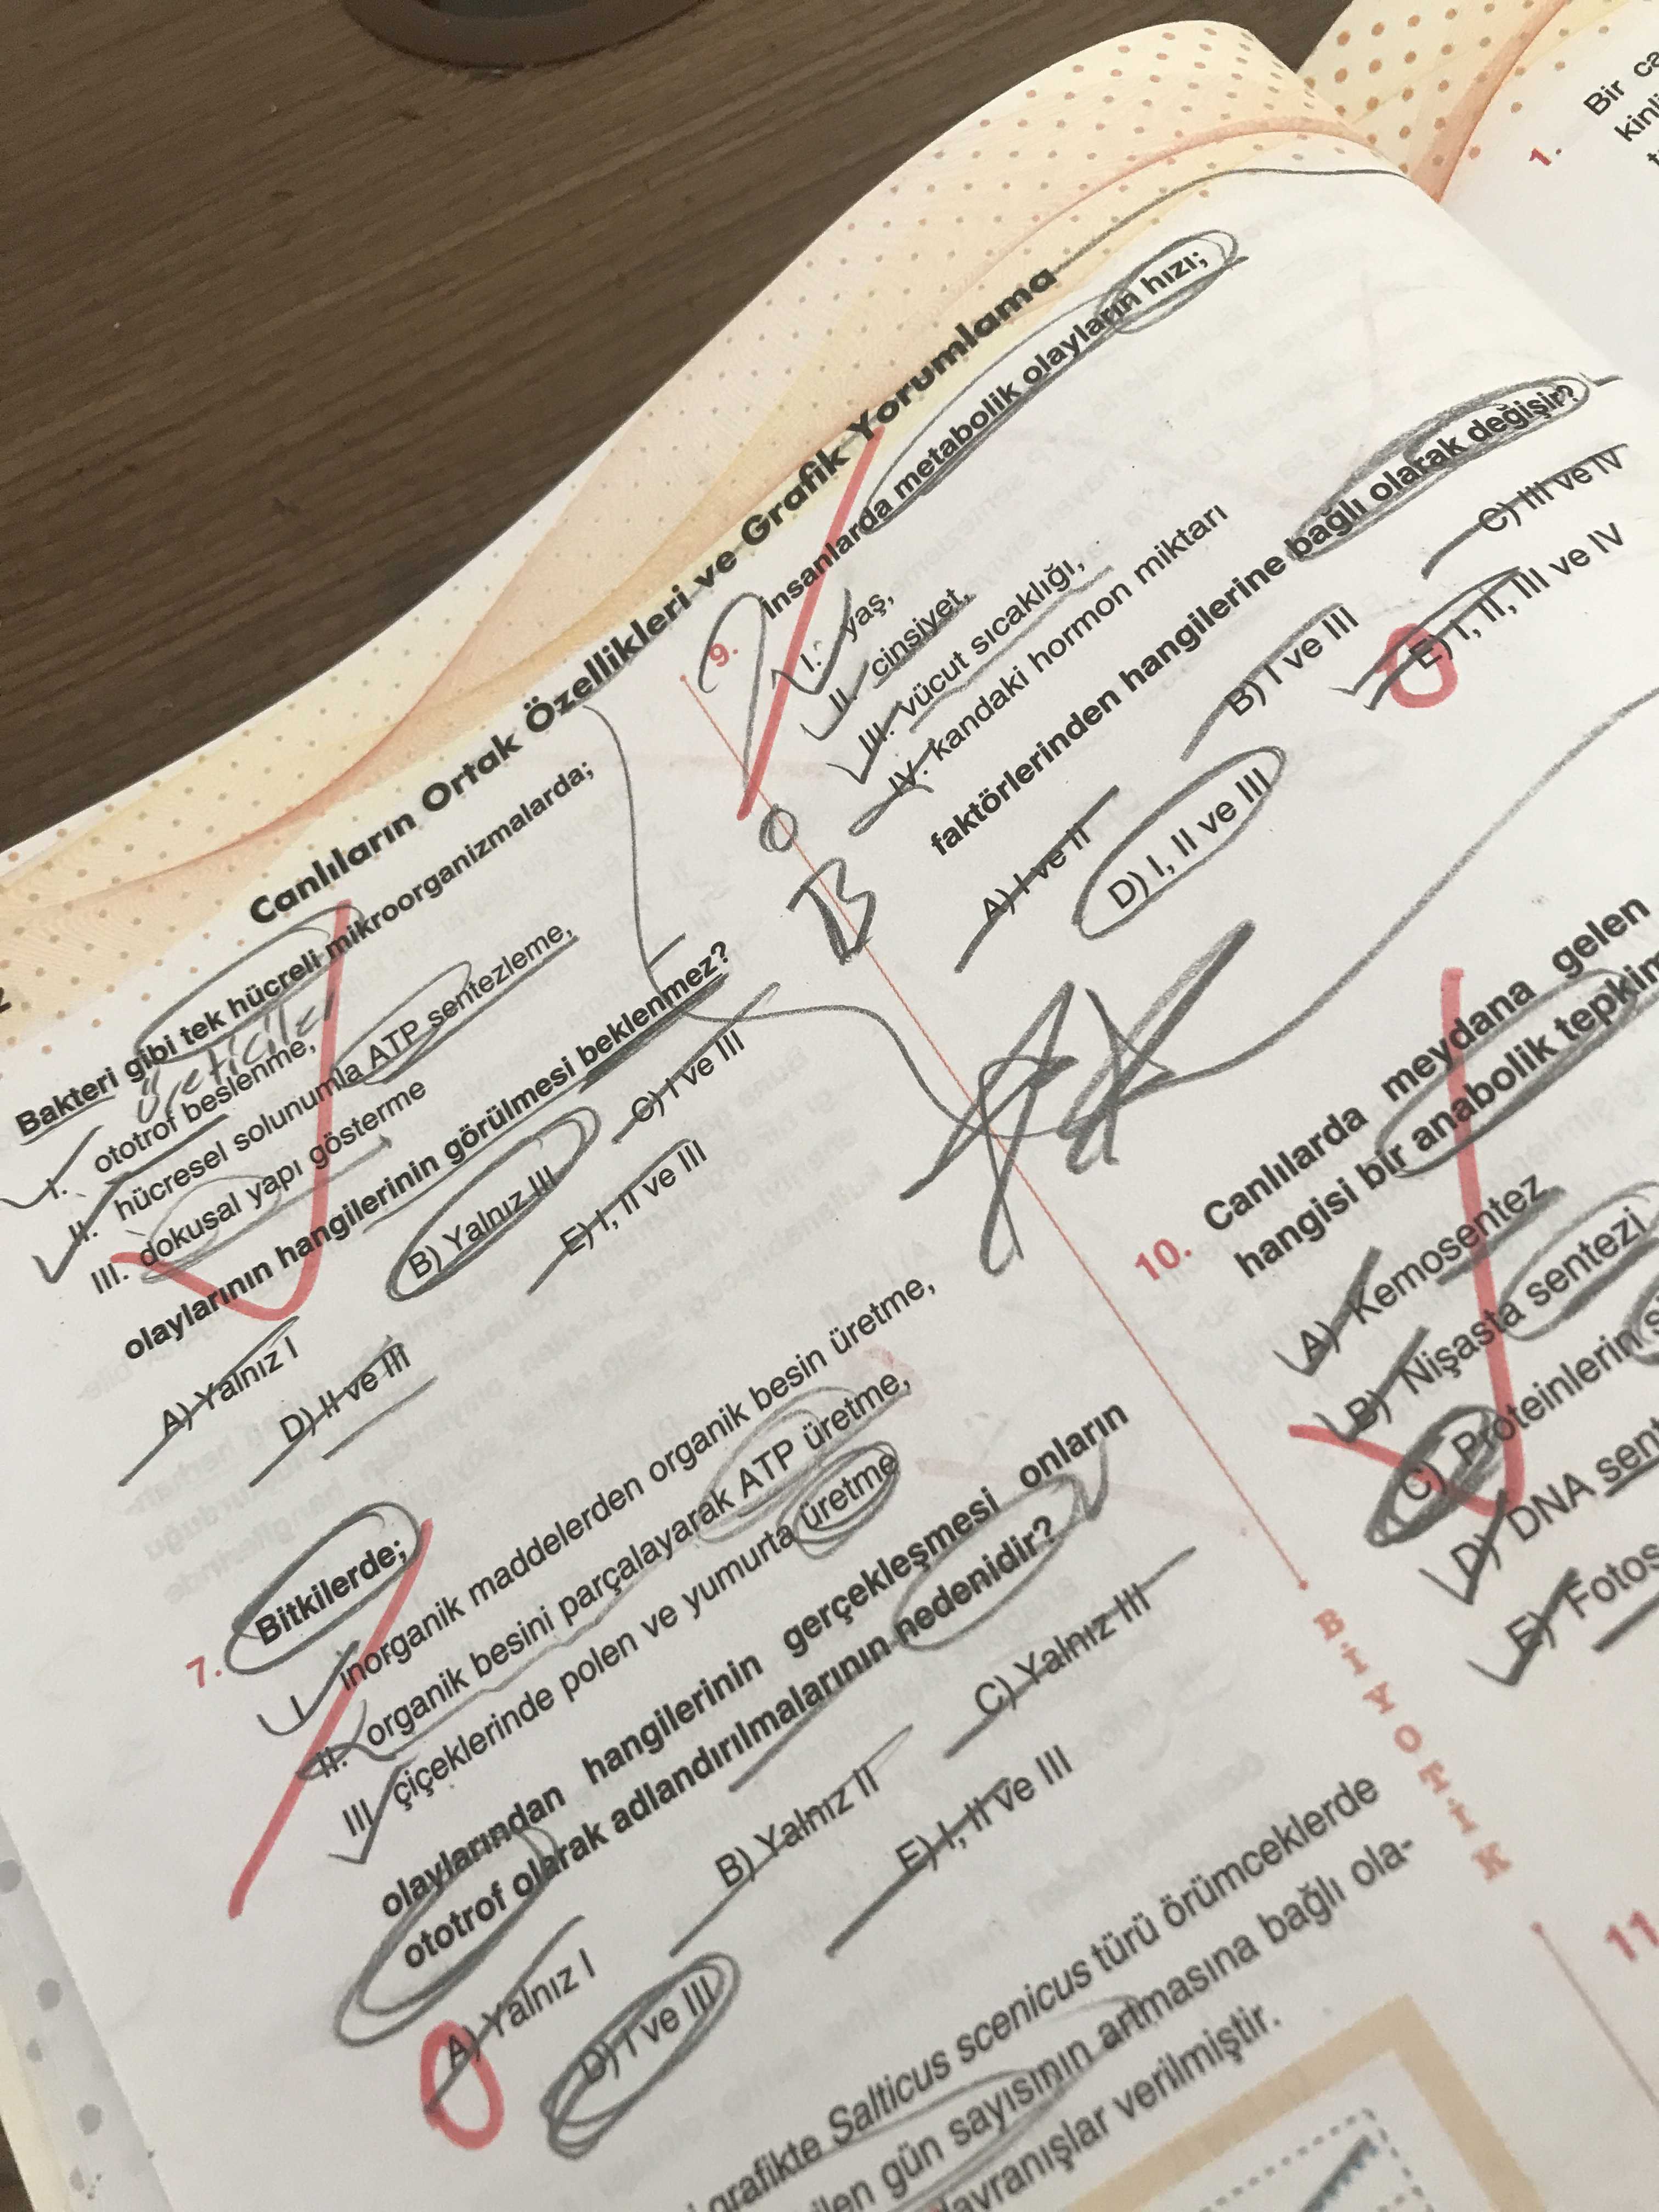 Canlıların Ortak Özellikleri ve Grafik Yorumlama
Bakteri gibi tek hücreli mikroorganizmalarda;
üreticiler
I. ototrof beslenme,
II. hücresel solunumla ATP sentezleme,
III. dokusal yapı gösterme
olaylarının hangilerinin görülmesi beklenmez?
A) Yalnız I
B) Yalnız III
C) I ve III
D) II ve III
E) I, II ve III
7. Bitkilerde;
I. inorganik maddelerden organik besin üretme,
II. organik besini parçalayarak ATP üretme,
III. çiçeklerinde polen ve yumurta üretme
olaylarından hangilerinin gerçekleşmesi onların
ototrof olarak adlandırılmalarının nedenidir?
A) Yalnız I
B) Yalnız II
C) Yalnız III
D) I ve III
E) I, II ve III
grafikte Salticus scenicus türü örümceklerde
gün sayısının artmasına bağlı ola-
davranışlar verilmiştir.
9. İnsanlarda metabolik olayların hızı;
I. yaş,
II. cinsiyet,
III. vücut sıcaklığı,
IV. kandaki hormon miktarı
faktörlerinden hangilerine bağlı olarak değişir?
A) I ve II
B) I ve III
C) III ve IV
D) I, II ve III
E) I, II, III ve IV
B
10. Canlılarda meydana gelen
hangisi bir anabolik
A) Kemosentez
B) Nişasta sentezi
C) Proteinlerin
D) DNA
E)
BİYOTİK
11
1. Bir